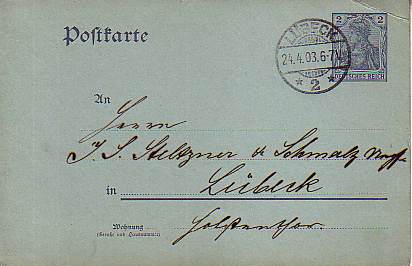 Postkarte
LÜBECK
24.4.03.6-7N.
* 2 *
2 2
DEUTSCHES REICH
An
Herrn
J. S. Steltzner & Schmalz Nachf.
in Lübeck
Wohnung
(Straße und Hausnummer)
Holstenthor.